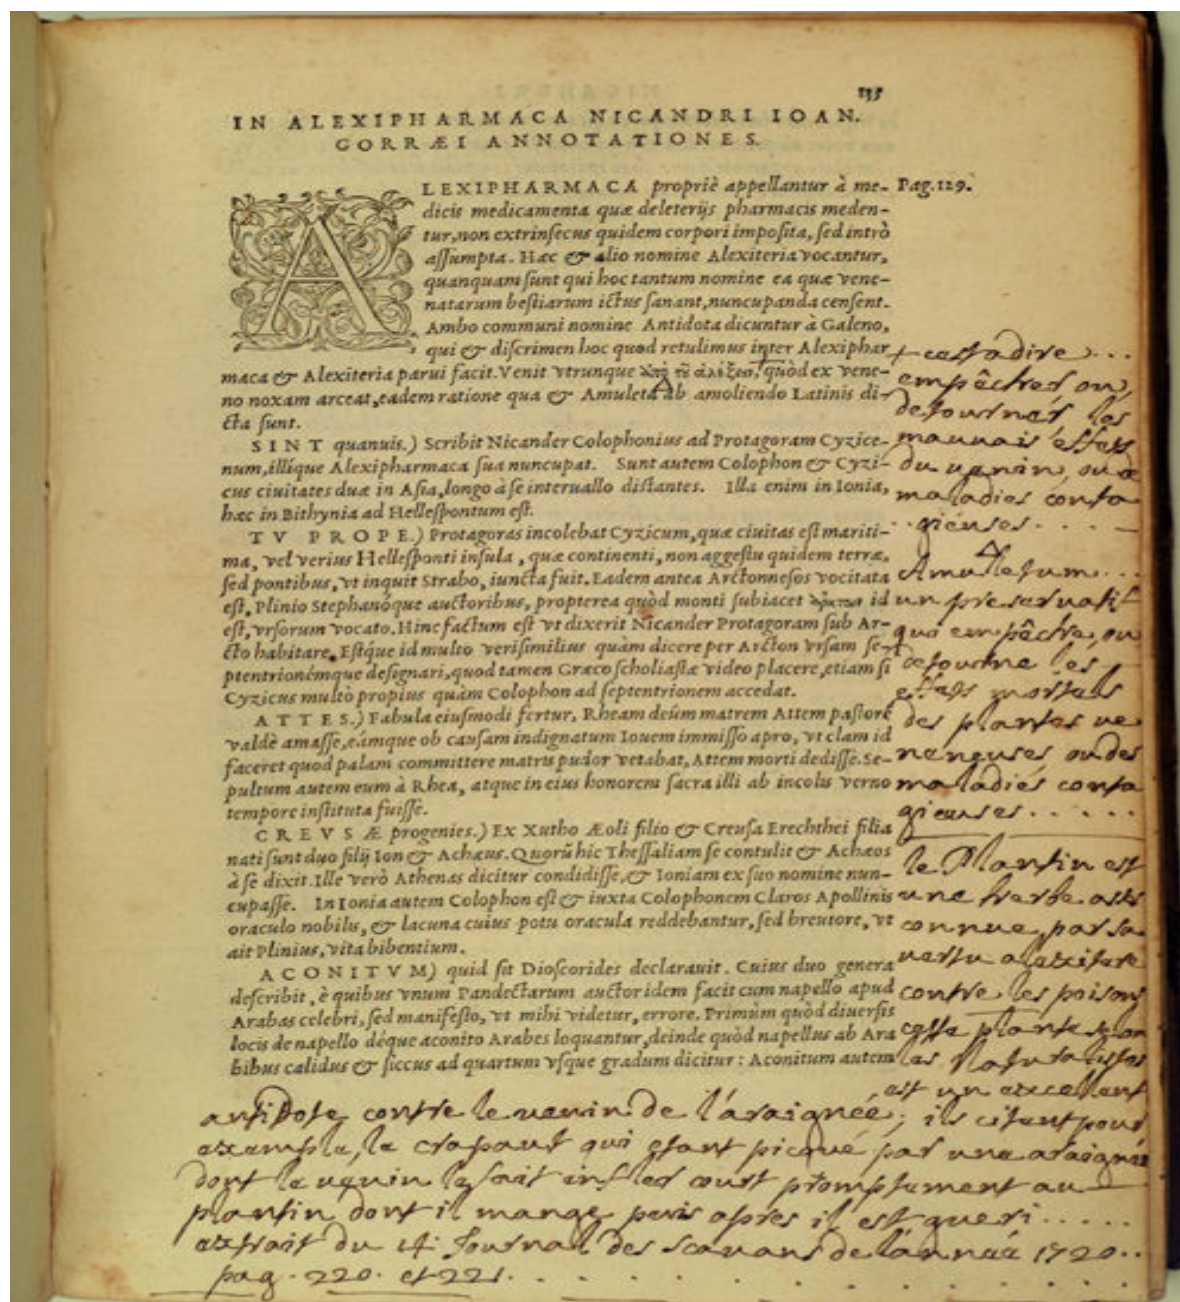 135
IN ALEXIPHARMACA NICANDRI IOAN.
GORRÆI ANNOTATIONES.
ALEXIPHARMACA propriè appellantur à me- Pag.129.
dicis medicamenta quæ deleterijs pharmacis meden-
tur, non extrinsecus quidem corpori imposita, sed intrò
assumpta. Hæc & alio nomine Alexiteria vocantur,
quanquam sunt qui hoc tantum nomine ea quæ vene-
natarum bestiarum ictus sanant, nuncupanda censent.
Ambo communi nomine Antidota dicuntur à Galeno,
qui & discrimen hoc quod retulimus inter Alexiphar
maca & Alexiteria parui facit. Venit vtrunque ἀπὸ τοῦ ἀλέξειν, quòd ex vene-
no noxam arceat, eadem ratione qua & Amuleta ab amoliendo Latinis di-
cta sunt.
SINT quanuis.) Scribit Nicander Colophonius ad Protagoram Cyzice-
num, illique Alexipharmaca sua nuncupat. Sunt autem Colophon & Cyzi-
cus ciuitates duæ in Asia, longo à se interuallo distantes. Illa enim in Ionia,
hæc in Bithynia ad Hellespontum est.
TV PROPE.) Protagoras incolebat Cyzicum, quæ ciuitas est mariti-
ma, vel verius Hellesponti insula, quæ continenti, non aggestu quidem terræ,
sed pontibus, vt inquit Strabo, iuncta fuit. Eadem antea Arctonnesos vocitata
est, Plinio Stephanóque auctoribus, propterea quòd monti subiacet id
est, vrsorum vocato. Hinc factum est vt dixerit Nicander Protagoram sub Ar-
cto habitare. Estque id multo verisimilius quàm dicere per Arcton vrsam se-
ptentrionémque designari, quod tamen Græco scholiastæ video placere, etiam si
Cyzicus multò propius quàm Colophon ad septentrionem accedat.
ATTES.) Fabula eiusmodi fertur, Rheam deûm matrem Attem pastorē
valdè amasse, eámque ob causam indignatum Iouem immisso apro, vt clam id
faceret quod palam committere matris pudor vetabat, Attem morti dedisse. Se-
pultum autem eum à Rhea, atque in eius honorem sacra illi ab incolis verno
tempore instituta fuisse.
CREVSÆ progenies.) Ex Xutho Æoli filio & Creusa Erechthei filia
nati sunt duo filij Ion & Achæus. Quorū hic Thessaliam se contulit & Achæos
à se dixit. Ille verò Athenas dicitur condidisse, & Ioniam ex suo nomine nun-
cupasse. In Ionia autem Colophon est & iuxta Colophonem Claros Apollinis
oraculo nobilis, & lacuna cuius potu oracula reddebantur, sed breuiore, vt
ait Plinius, vita bibentium.
ACONITVM) quid sit Dioscorides declarauit. Cuius duo genera
describit, è quibus vnum Pandectarum auctor idem facit cum napello apud
Arabas celebri, sed manifesto, vt mihi videtur, errore. Primùm quòd diuersis
locis de napello déque aconito Arabes loquantur, deinde quòd napellus ab Ara
bibus calidus & siccus ad quartum vsque gradum dicitur: Aconitum autem
+ cest a dire ...
empêcher ou
detourner les
mauvais effets
du venin, ou de
maladies conta
gieuses ....
Amuletum ...
un preservatif
qui empêche, ou
detourne les
effets mortels
des plantes ve
neneuses ou des
maladies conta
gieuses .....
le Plantin est
une herbe asses
connue, par sa
vertu alexitere
contre les poisons
cette plante selon
les Naturalistes
est un excellent
antidote contre le venin de l'araignée; ils citent pour
exemple, le crapaut qui etant picqué par une araignée
dont le venin le fait enfler court promptement au
plantin dont il mange puis apres il est gueri .....
extrait du 14. Journal des scavans de l'année 1720..
pag. 220. et 221. . . . . . .